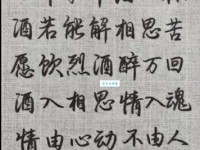 酒若能解相思苦
愿饮烈酒醉万回
酒入相思情入魂
情由心动不由人